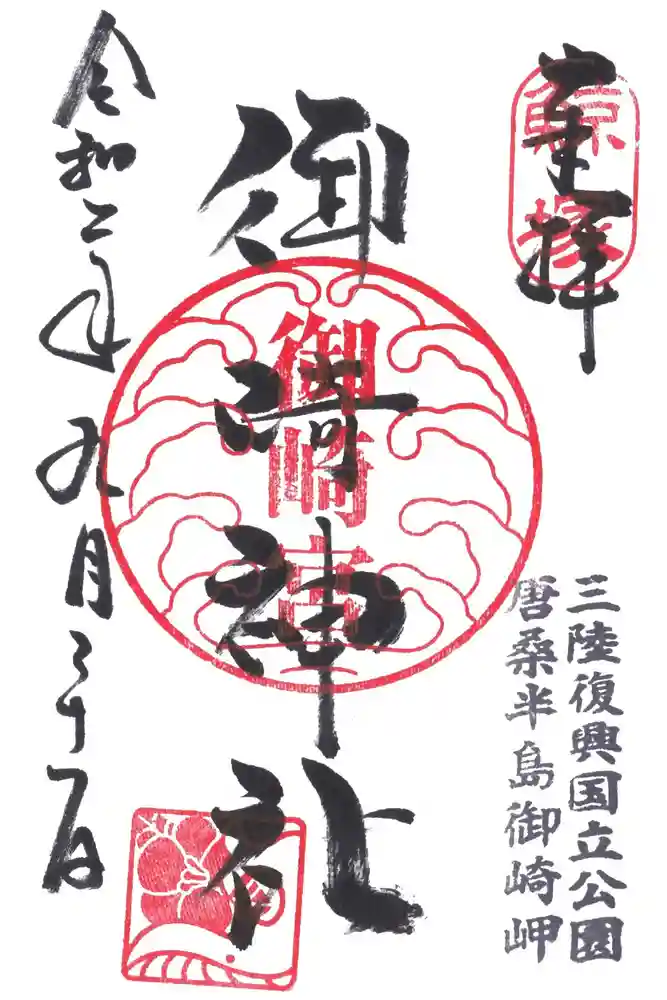 奉拝
鯨塚
三陸復興国立公園
唐桑半島御崎岬
御崎神社
御崎宮
令和二年九月三十一日